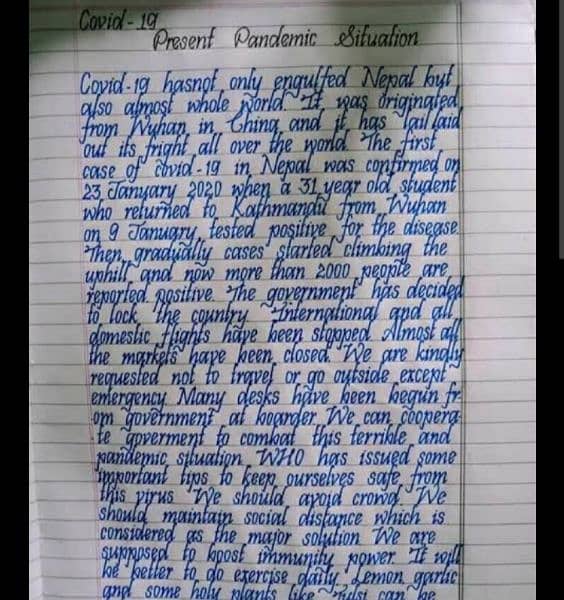 Covid-19
Present Pandemic Situation
Covid-19 hasnot only engulfed Nepal but
also almost whole world. It was originated
from Wuhan in China and it has laid
out its fright all over the world. The first
case of covid-19 in Nepal was confirmed on
23 January 2020 when a 31 year old student
who returned to Kathmandu from Wuhan
on 9 January, tested positive for the disease.
Then, gradually cases started climbing the
uphill and now more than 2000 people are
reported positive. The government has decided
to lock the country. International and all
domestic flights have been stopped. Almost all
the markets have been closed. We are kindly
requested not to travel or go outside except
emergency. Many desks have been begun fr
om government at boarder. We can coopera-
te goverment to combat this terrible and
pandemic situation. WHO has issued some
important tips to keep ourselves safe from
this virus. We should avoid crowd. We
should maintain social distance which is
considered as the major solution. We are
supposed to boost immunity power. It will
be better to do exercise daily. Lemon, garlic
and some holy plants like Tulsi can be